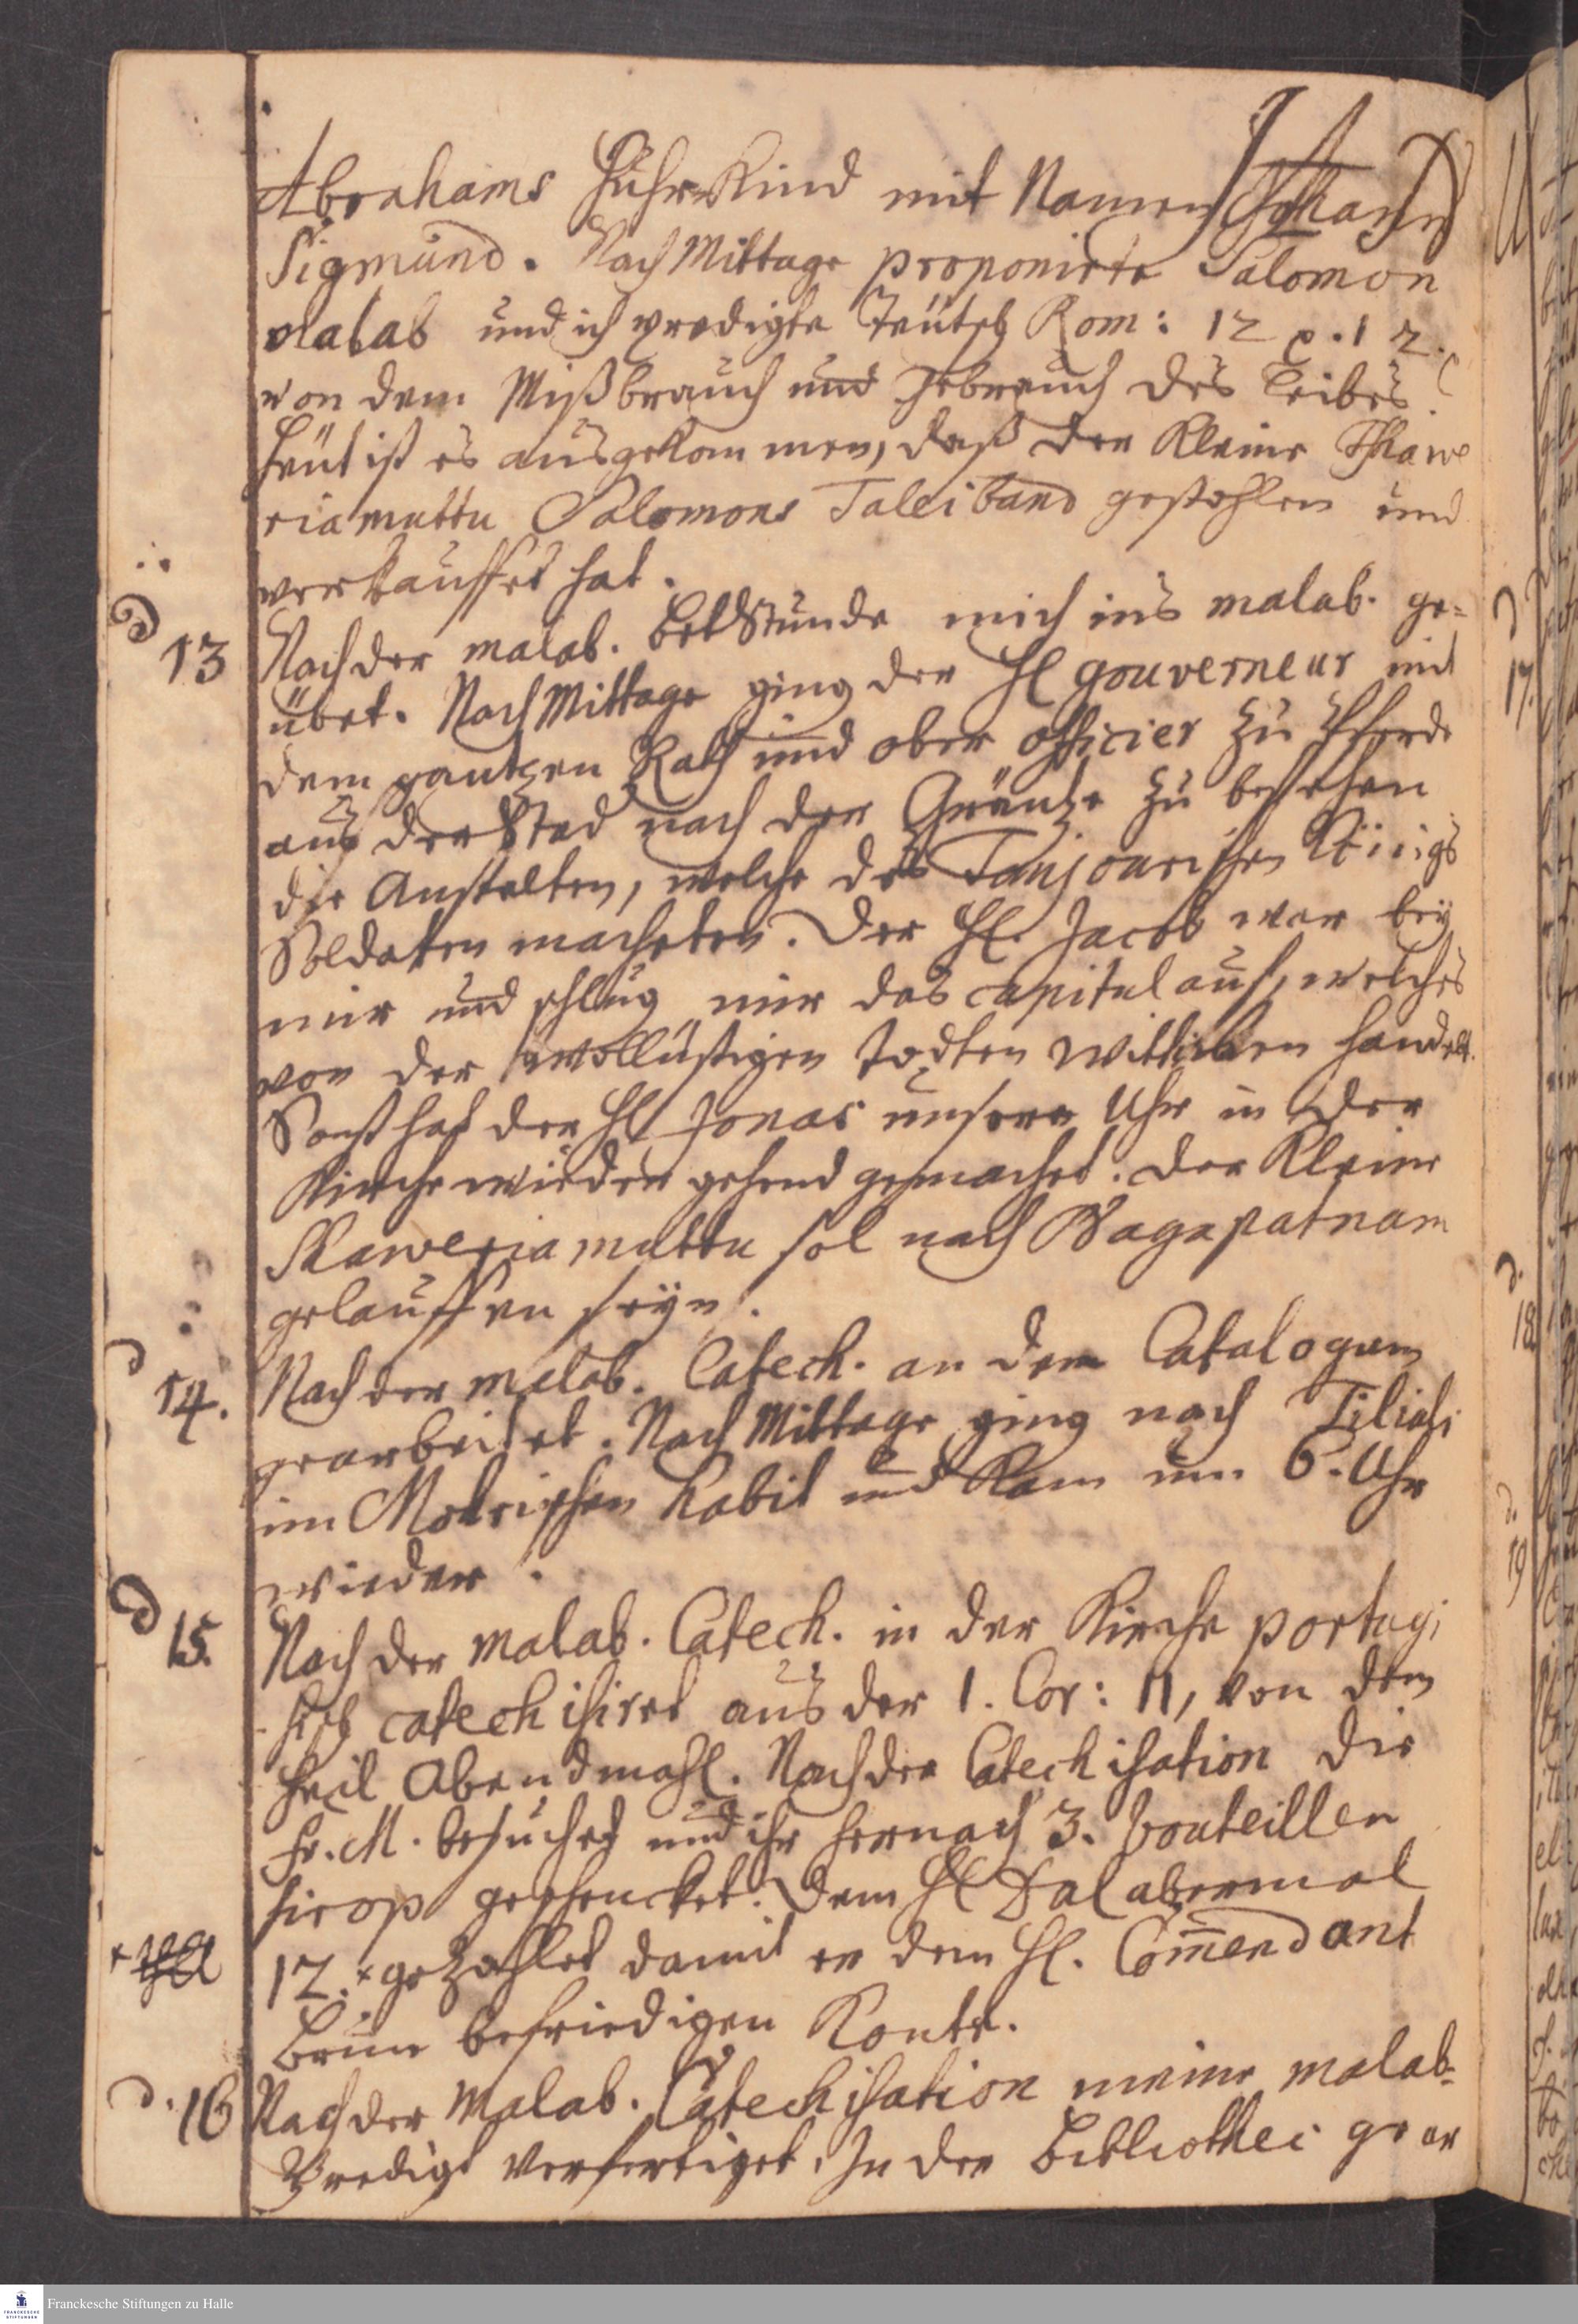 Abrahams Huhr-Kind mit Namen Johann
Sigmund. Nach Mittage proponirte Salomon
malab und ich predigte Teütsch Rom: 12 v. 1 2.
von dem Mißbrauch und Gebrauch des Leibes.
Heüt ist es ausgekommen, daß der kleine Skawe
riamuttu Salomons Taleiband gestohlen und
verkauffet hat.
d 13 Nach der malab. Betstunde mich ins malab. ge-
übet. Nach Mittage ging der Hl gouverneur mit
dem gantzen Rath und ober officier zu Pferde
aus der Stad nach der Gräntze zu besehen
die Anstalten, welche des Tanjourischen Königs
Soldaten macheten. Der Hl. Jacob war bey
mir und schlug mir das capitel auf, welches
von der wollüstigen todten Wittiben handelt.
Sonst hat der Hl Jonas unsere Uhr in der
Kirche wieder gehend gemachet. Der Kleine
Skaweriamuttu sol nach Nagapatnam
gelauffen seyn.
d 14. Nach der malab. Catech. an dem Catalogum
gearbeitet. Nach Mittage ging nach Tiliali
im Mohrischen habit und kam um 6. Uhr
wieder.
d 15. Nach der malab. Catech. in der Kirche portugi
sisch catechisiret aus der 1. Cor: 11, von dem
heil Abendmahl. Nach der Catechisation die
Fr. M. besuchet und ihr hernach 3. bouteillen
sirop geschencket. Dem Hl Dal abermal
12. + gezahlet damit er dem Hl. Com̄endant
Brun befriedigen konte.
d. 16 Nach der Malab. Catechisation meine malab-
Predigt verfertiget. In der Bibliothec gear
Franckesche Stiftungen zu Halle